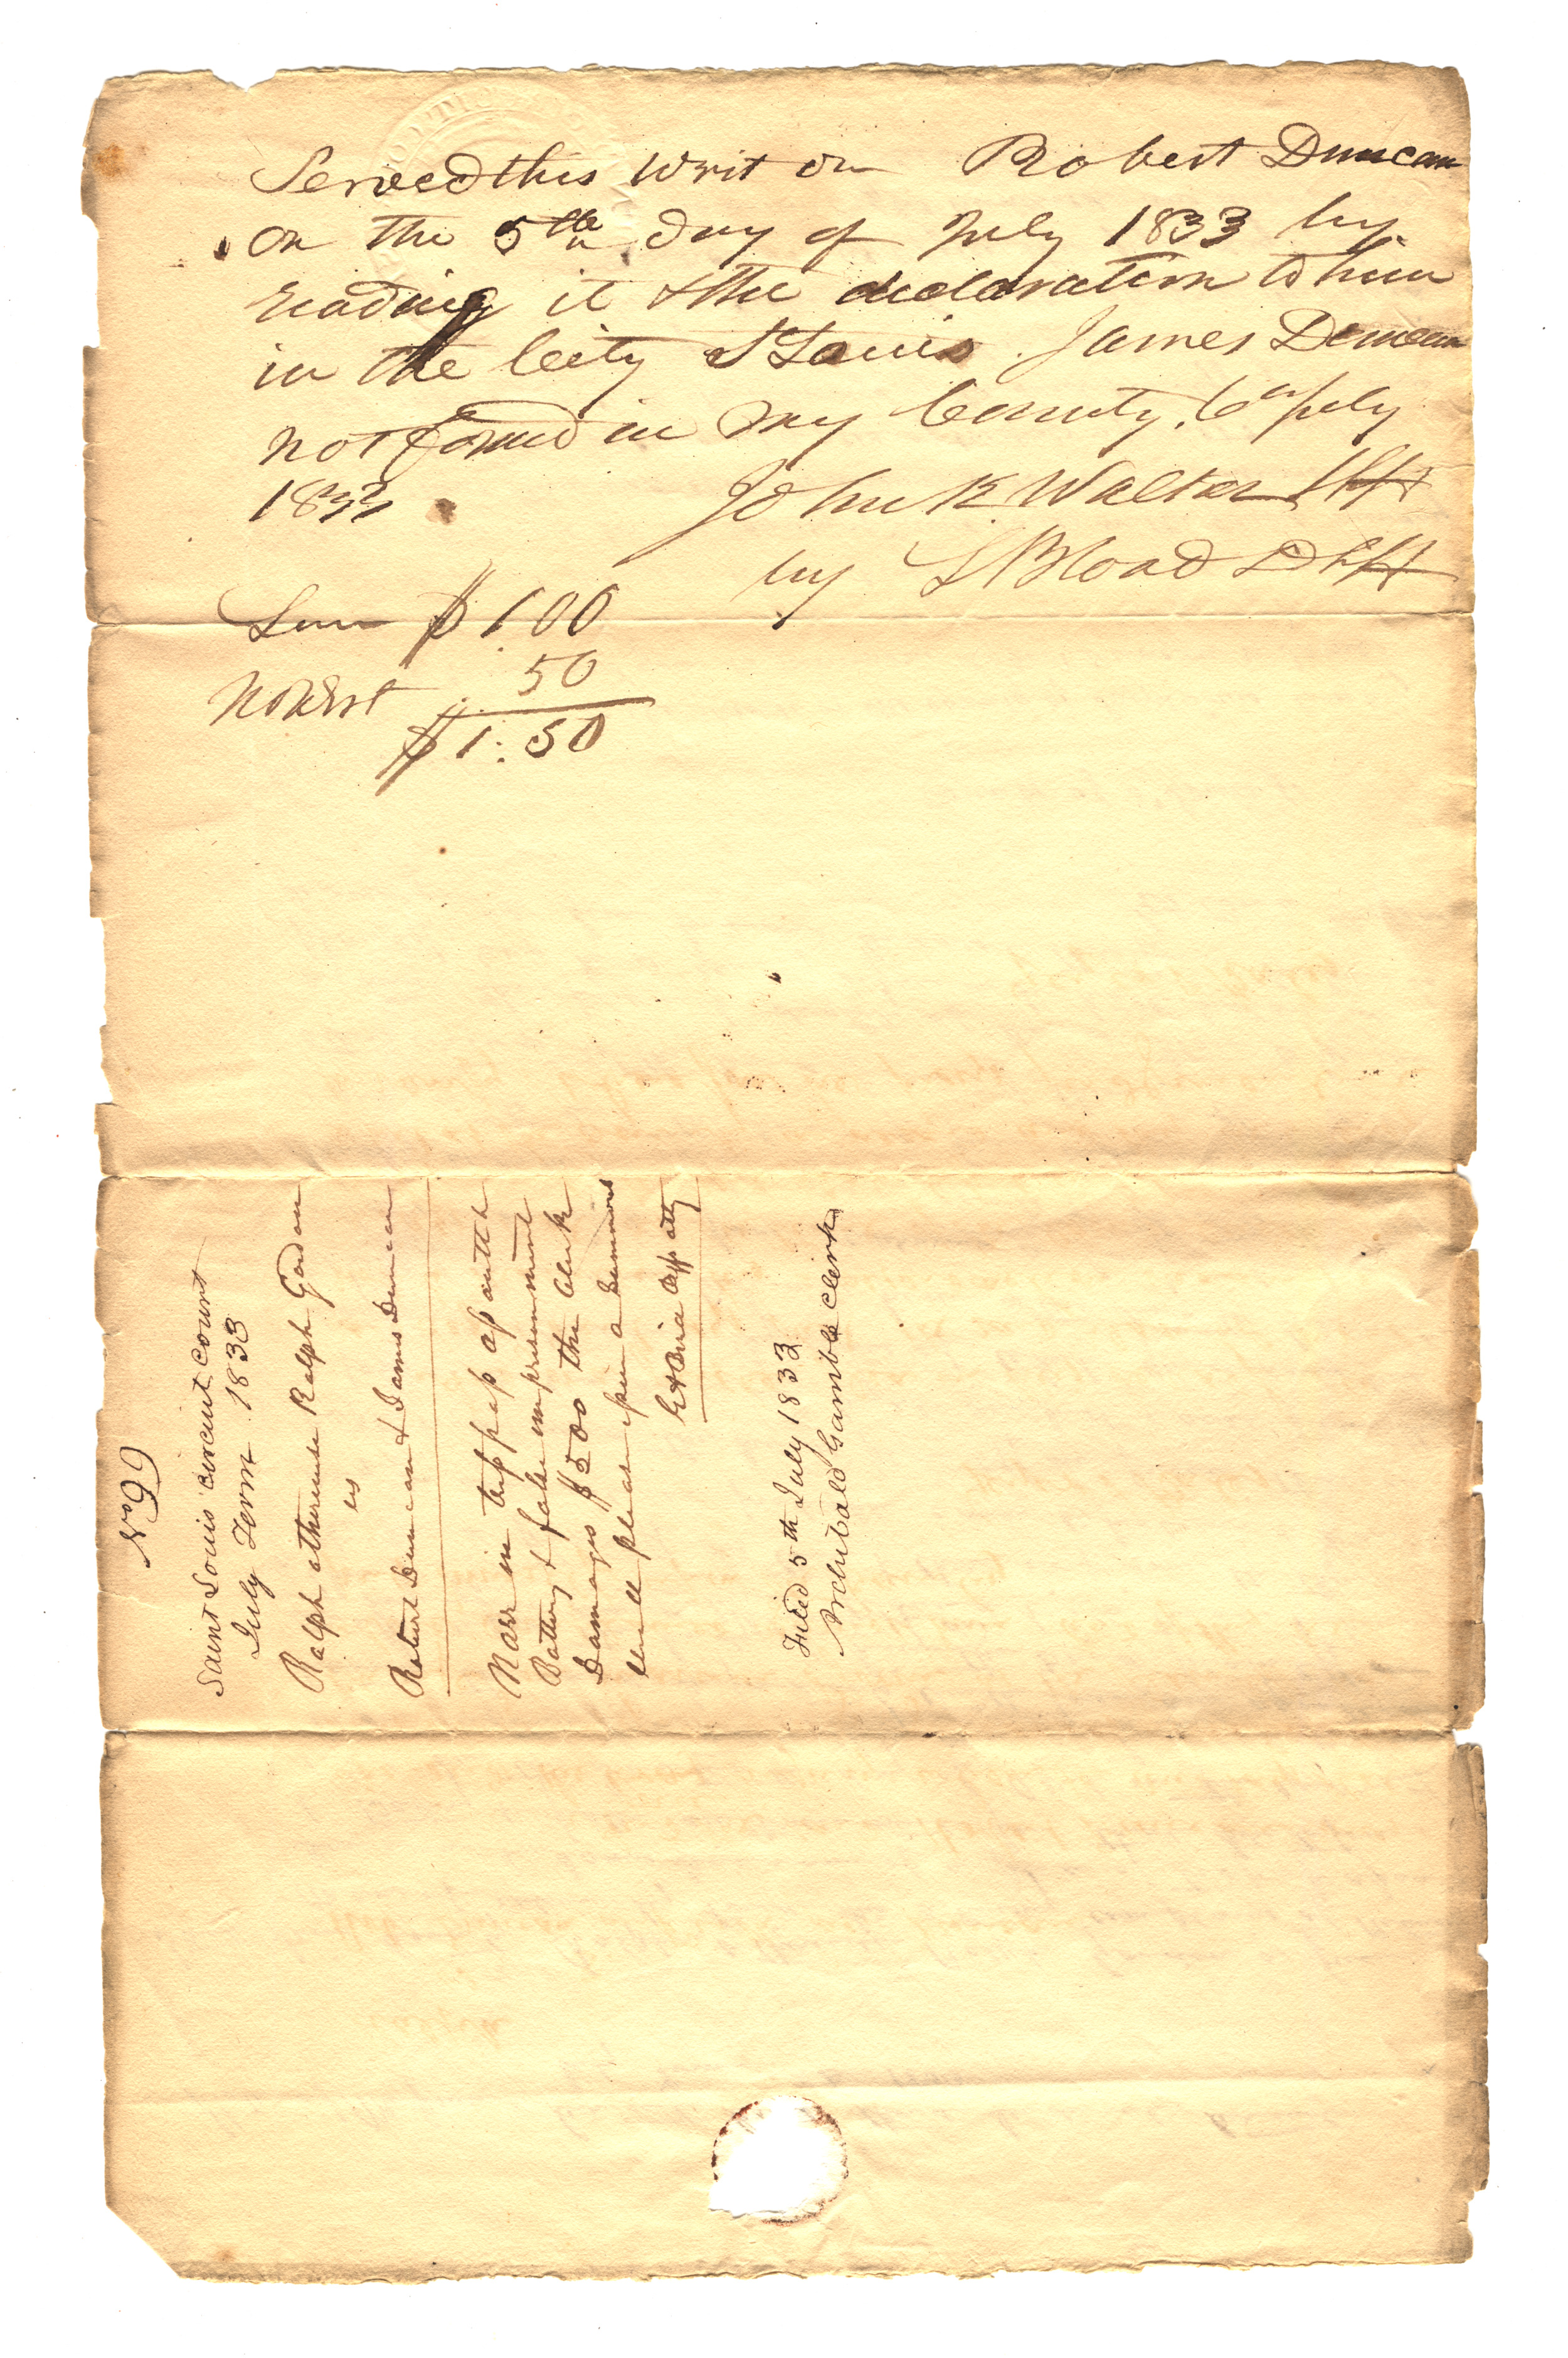 Served this writ on Robert Duncan
on the 5th day of July 1833 by
reading it & the declaration to him
in the City St Louis. James Duncan
not found in my County. 6th July
1833
John K Walker Shff
by L Bload D Shff
Serv $1.00
Non Est 50
$1.50
No 99
Saint Louis circuit court
July Term 1833
Ralph otherwise Ralph Gordon
vs
Robert Duncan & James Duncan
Narr in trespass assault
Battery & false imprisonment
Damages $500 the clerk
will please issue a summons
atty
Filed 5th July 1833
Archibald Gamble Clerk